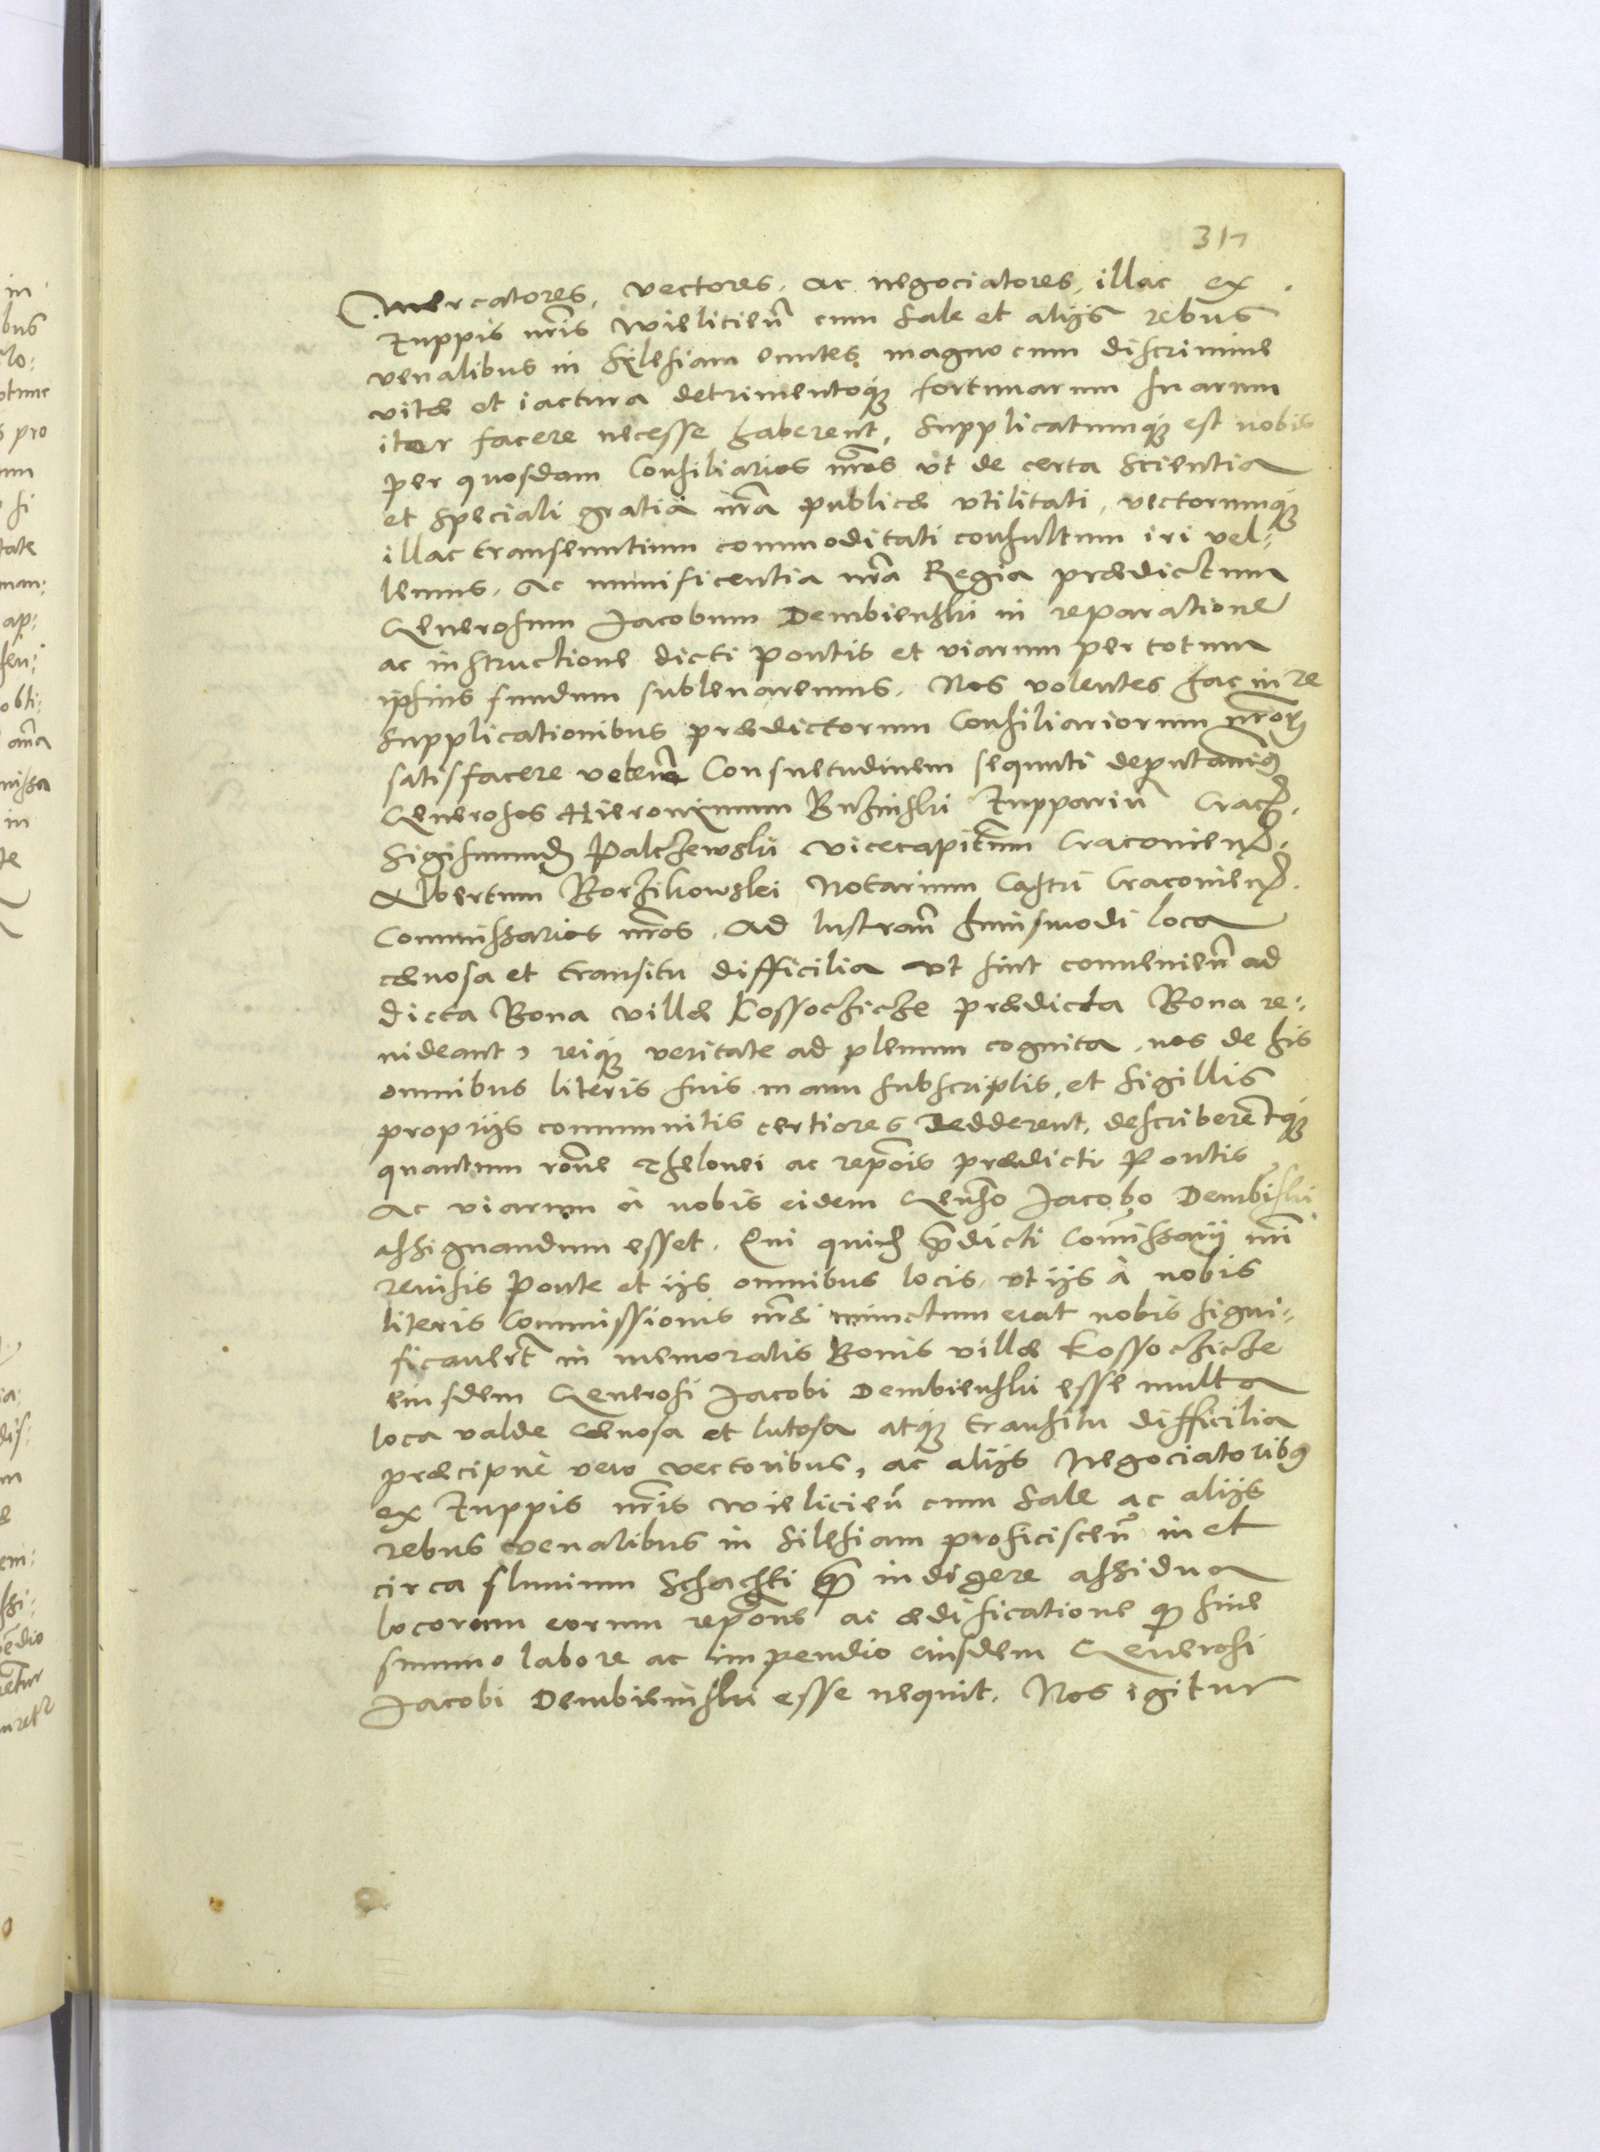 317
Mercatores, vectores, ac negociatores, illac ex
Zuppis nris Wielicien cum Sale et alijs rebus
venalibus in Sylesiam euntes, magno cum discrimine
vitæ et iactura detrimentoq; fortunarum suarum
iter facere necesse haberent, supplicatumq; est nobis
per quosdam Consiliarios nros vt de certa scientia
et speciali gratia nra publicæ vtilitati, vectorumq;
illac transeuntium commoditati consultum iri vel=
lemus, Ac munificentia nra Regia prædictum
Generosum Jacobum Dembienski in reparatione
ac instructione dicti pontis et viarum per totum
ipsius fundum subleuaremus. Nos volentes hac in re
supplicationibus prædictorum Consiliariorum nror
satisfacere veterem Consuetudinem sequuti deputauimus
Generosos Hieronymum Buzinski Zupparium Crac.
Sigismund Palczewski vicecapitm Cracovien.
Albertum Borzikowski Notarium Castri Cracovien.
Commissarios nros. Ad lustran huiusmodi loca
cænosa et transitu difficilia vt sint conuenien ad
dicta Bona villæ Kossochicze prædicta Bona re=
uideant, reiq; veritate ad plenum cognita, nos de his
omnibus literis suis manu subscriptis, et sigillis
proprijs communitis certiores redderent, describerentq;
quantum rone thelonei ac repaois prædicti Pontis
Ac viarum a nobis eidem Genso Jacobo Dembinski
assignandum esset. Qui quid prædicti Comissarij nri
reuisis ponte et ijs omnibus locis, vt ijs à nobis
literis Commissionis nræ iniunctum erat nobis signi=
ficauert in memoratis Bonis villæ Kossochicze
eiusdem Generosi Jacobi Dembienski esse multa
loca valde cænosa et lutosa atq; transitu difficilia
præcipuè vero vectoribus, ac alijs Negociatoribus
ex Zuppis nris Wielicien cum Sale ac alijs
rebus venalibus in Silesiam proficiscen in et
circa fluuium Schachti indigere assidua
locorum eorum repaone ac ædificatione q sine
summo labore ac impendio eiusdem Generosi
Jacobi Dembieinski esse nequit. Nos igitur